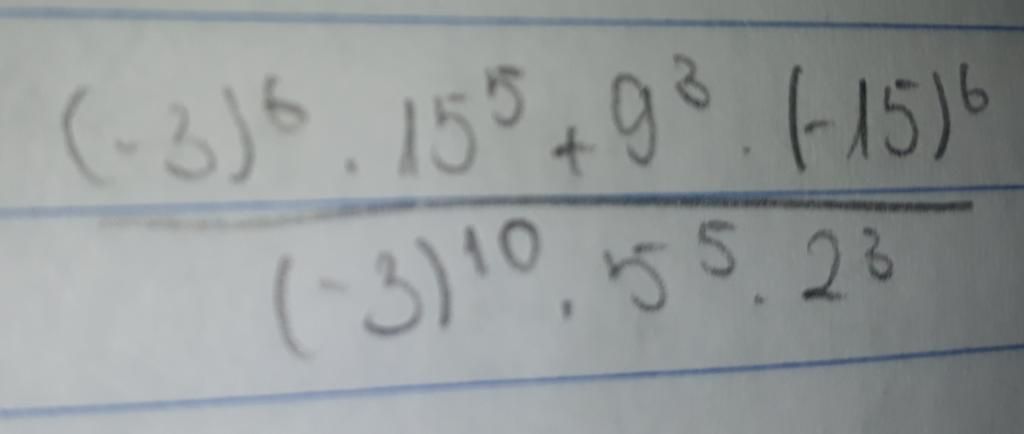 (-3)⁶ . 15⁵ + 9³ . (-15)⁶
(-3)¹⁰ . 5⁵ . 2³